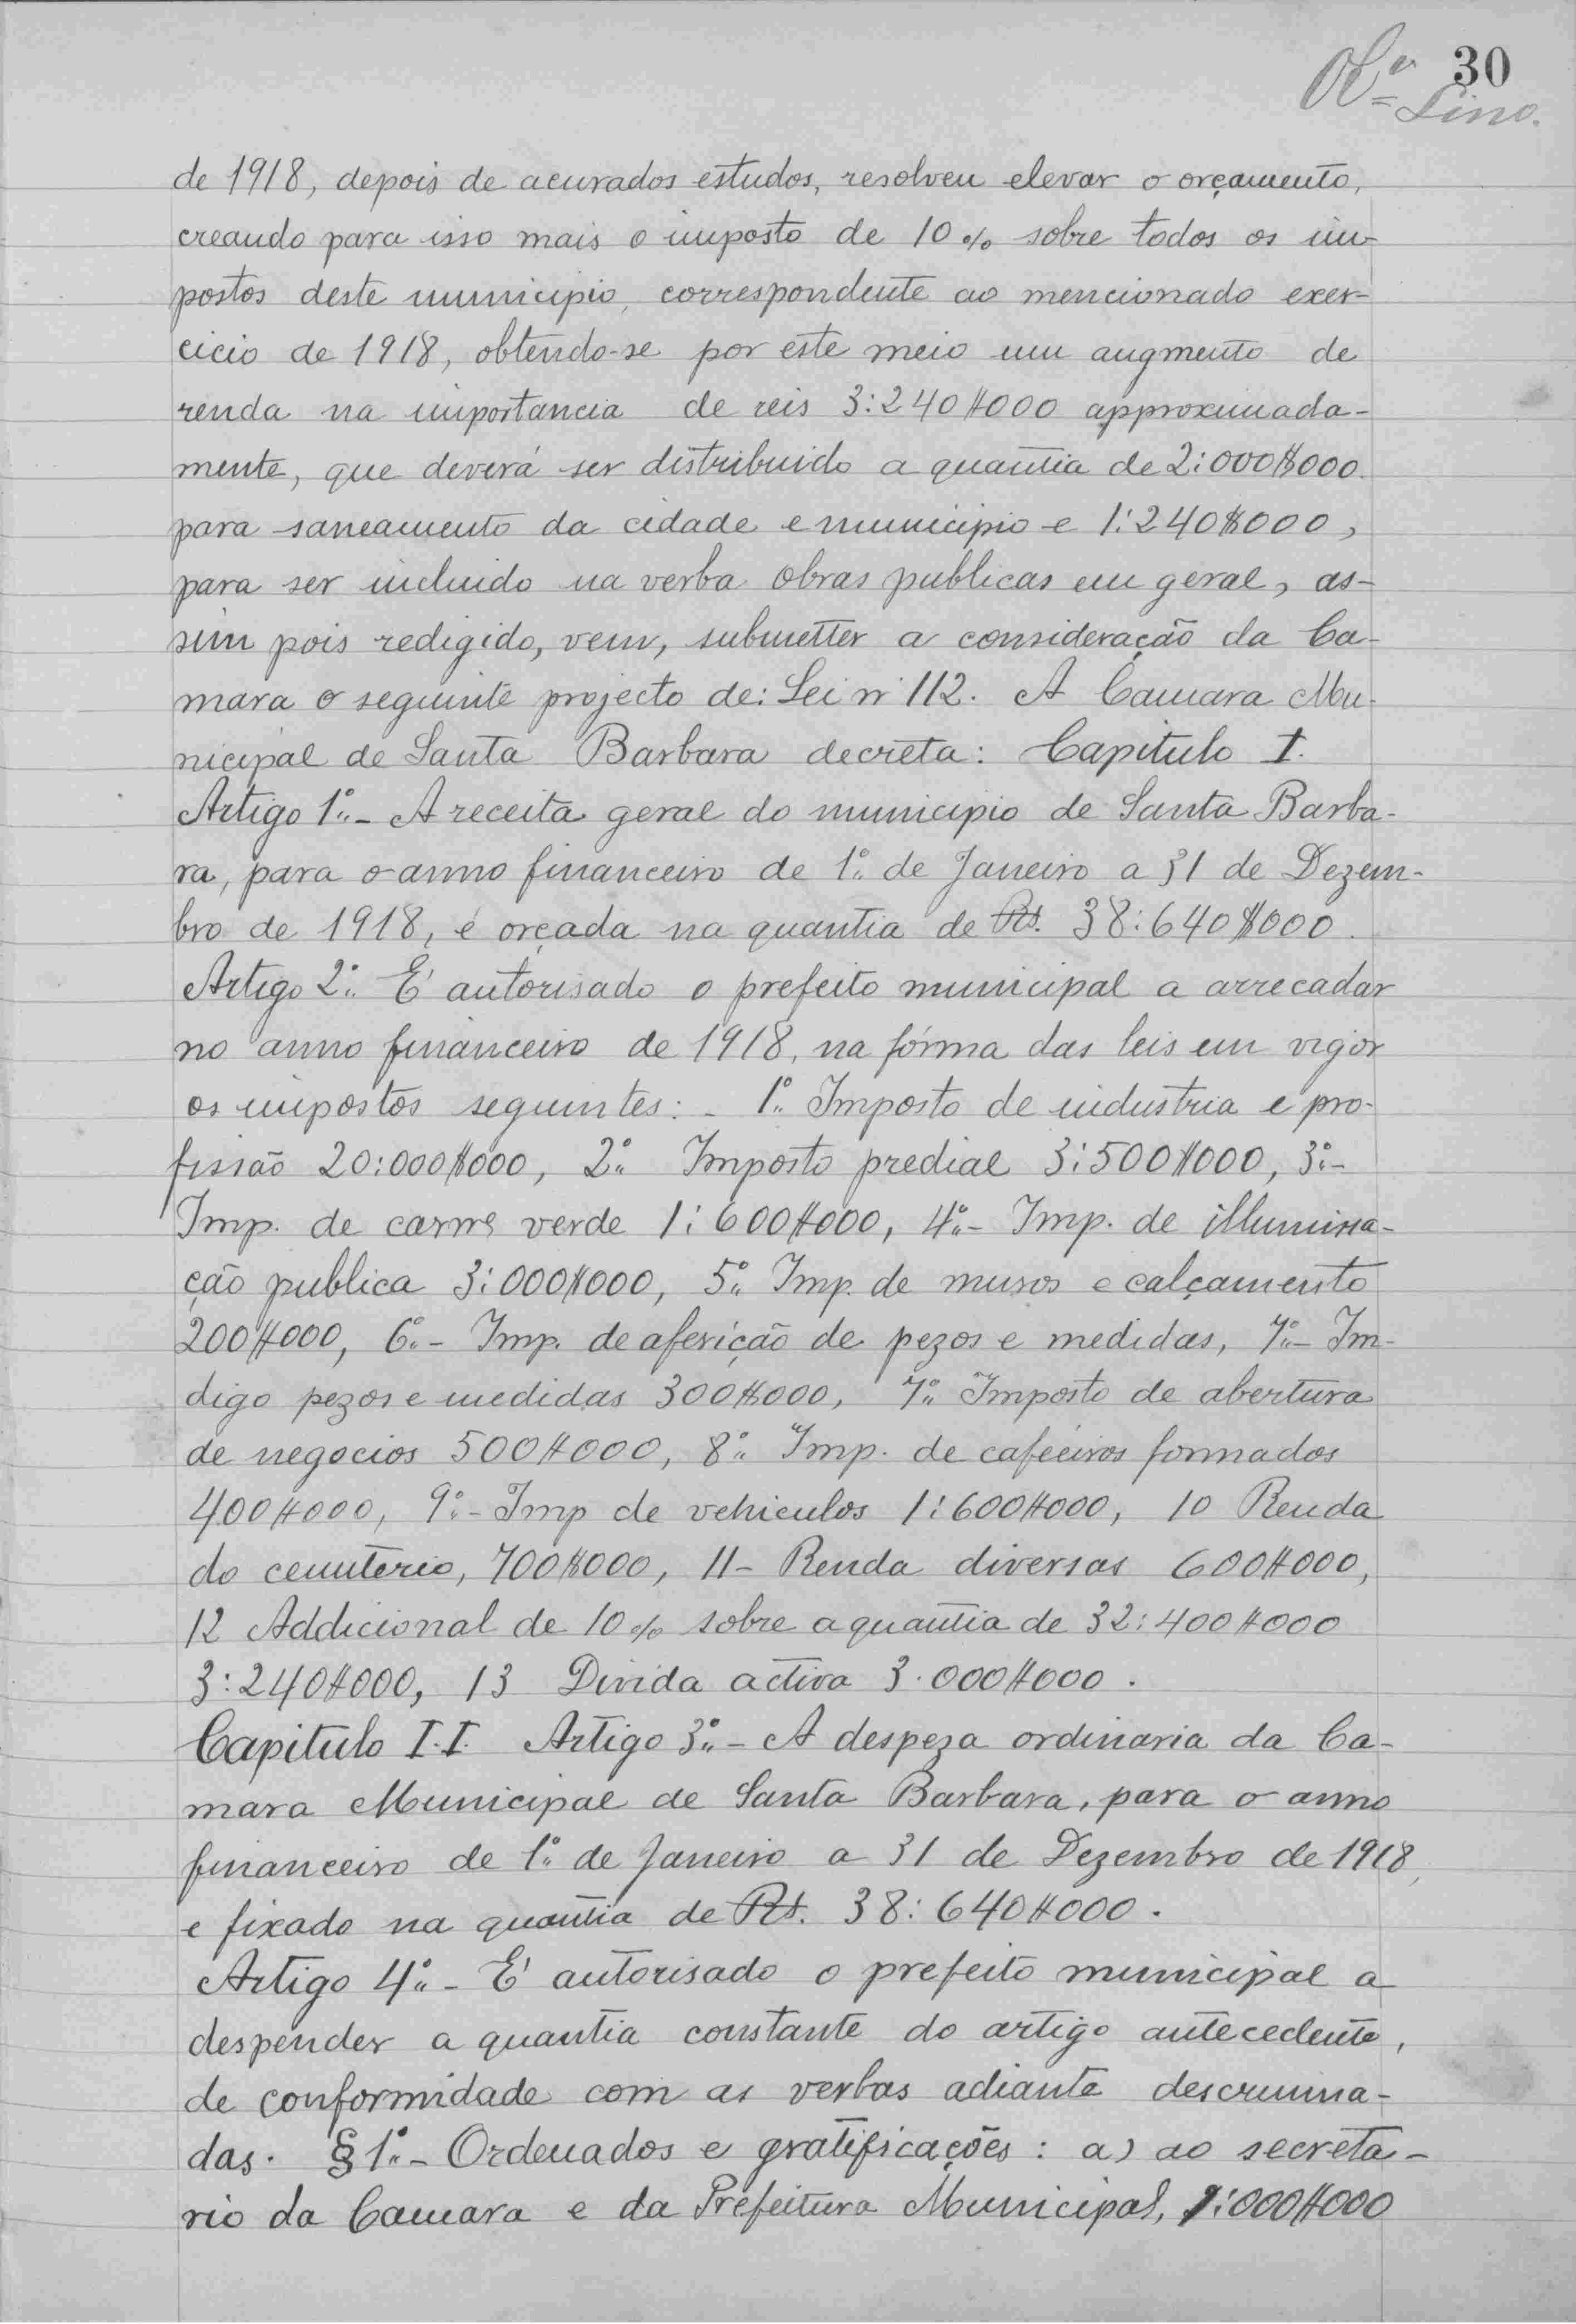 30
Lino.
de 1918, depois de acurados estudos, resolveu elevar o orçamento,
creando para isso mais o imposto de 10% sobre todos os im-
postos deste municipio, correspondente ao mencionado exer-
cicio de 1918, obtendo-se por este meio um augmento de
renda na importancia de reis 3:240$000 approximada-
mente, que deverá ser distribuido a quantia de 2:000$000
para saneamento da cidade e municipio e 1:240$000,
para ser incluido na verba obras publicas em geral, as-
sim pois redigido, vem, submetter a consideração da Ca-
mara o seguinte projecto de: Lei nº 112. A Camara Mu-
nicipal de Santa Barbara decreta: Capitulo I.
Artigo 1º - A receita geral do municipio de Santa Barba-
ra, para o anno financeiro de 1º de Janeiro a 31 de Dezem-
bro de 1918, é orçada na quantia de Rs. 38:640$000.
Artigo 2º E' autorisado o prefeito municipal a arrecadar
no anno financeiro de 1918, na fórma das leis em vigor
os impostos seguintes: - 1º Imposto de industria e pro-
fissão 20:000$000, 2º Imposto predial 3:500$000, 3º -
Imp. de carne verde 1:600$000, 4º - Imp. de illumina-
ção publica 3:000$000, 5º Imp. de muros e calçamento
200$000, 6º - Imp. de aferição de pezos e medidas, 7º - Im-
digo pezos e medidas 300$000, 7º Imposto de abertura
de negocios 500$000, 8º Imp. de cafeeiros formados
400$000, 9º - Imp de vehiculos 1:600$000, 10 Renda
do cemiterio, 700$000, 11 - Renda diversas 600$000,
12 Addicional de 10% sobre a quantia de 32:400$000
3:240$000, 13 Divida activa 3.000$000.
Capitulo I.I. Artigo 3º - A despeza ordinaria da Ca-
mara Municipal de Santa Barbara, para o anno
financeiro de 1º de Janeiro a 31 de Dezembro de 1918,
e fixado na quantia de Rs. 38:640$000.
Artigo 4º - E' autorisado o prefeito municipal a
despender a quantia constante do artigo antecedente,
de conformidade com as verbas adiante descrimina-
das. § 1º - Ordenados e gratificações: a) ao secreta-
rio da Camara e da Prefeitura Municipal, 1:000$000